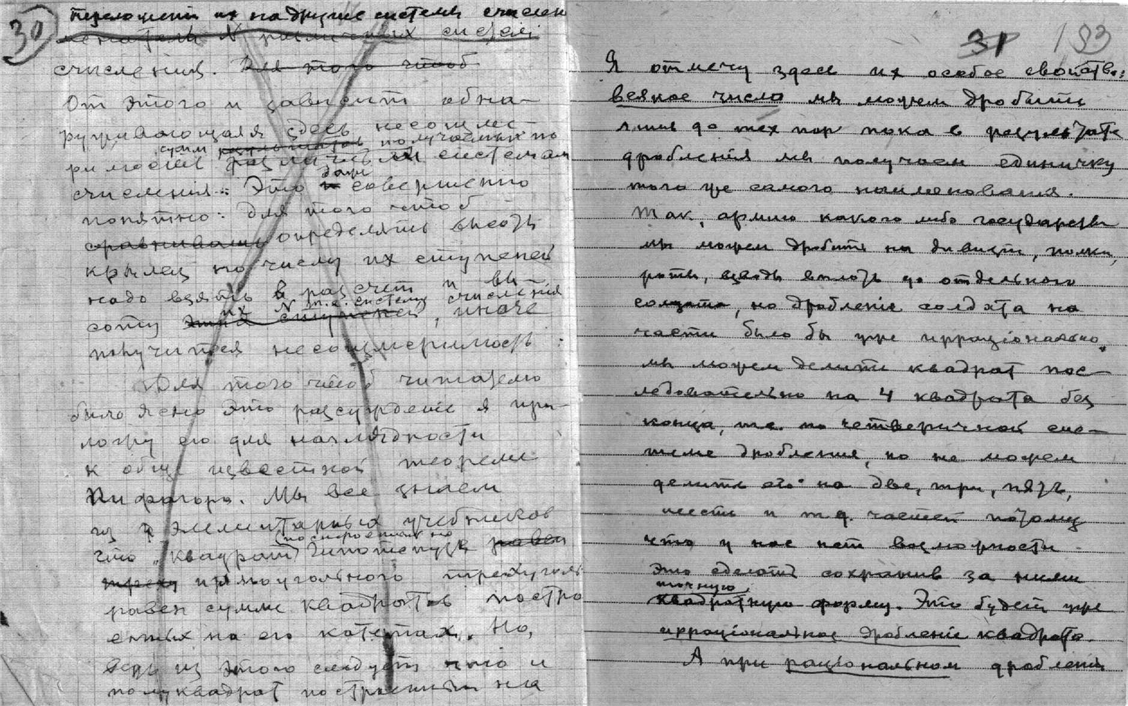 30
переложения их на другие системы счислен
различных систем
счисления. Для того чтоб
От этого и зависит обна-
руживающаяся здесь несоизме-
сумм получаемых по
римость различным системам
счисления. Это совершенно
понятно: для того чтоб
сравнивать определять высоту
крылец по числу их ступеней
надо взять в расчет и вы
их N т.е. систему счисления
соту этих ступеней, иначе
получится несоизмеримость.
Для того чтоб читателю
было ясно это рассуждение я при-
ложу его для наглядности
к обще известной теореме
Пифагора. Мы все знаем
из элементарных учебников
(построенный на
что „квадрат гипотенузе равен
прямоугольного треуголь
равен сумме квадратов постро
енных на его катетах. Но,
ведь из этого следует что и
полуквадрат построенный на
31 193
Я отмечу здесь их особое свойство:
всякое число мы можем дробить
лишь до тех пор пока в результате
дробления мы получаем единичку
того же самого наименования.
Так, армию какого либо государства
мы можем дробить на дивизии, полки,
роты, взводы вплоть до отдельного
солдата, но дробление солдата на
части было бы уже иррационально.
мы можем делить квадрат пос-
ледовательно на 4 квадрата без
конца, т.е. по четверичной сис-
теме дробления, но не можем
делить его на две, три, пять,
шесть и т.д. частей потому
что у нас нет возможности
это сделать сохранив за ними
точную
квадратную форму. Это будет уже
иррациональное дробление квадрата.
А при рациональном дроблении